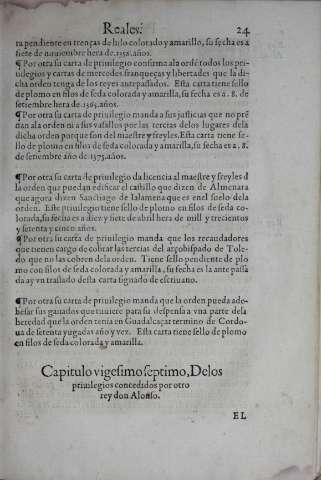 Reales. 24
ra pendiente en trenças de hilo colorado y amarillo, su fecha es a
siete de nouiembre hera de 1358. años.
¶ Por otra su carta de priuilegio confirma a la ordē todos los pri-
uilegios y cartas de mercedes franqueças y libertades que la di-
cha orden tenga de los reyes antepassados. Esta carta tiene sello
de plomo en filos de seda colorada y amarilla, su fecha es a. 8. de
setiembre hera de 1365. años.
¶ Por otra su carta de priuilegio manda a sus justicias que no prē
dan a la orden ni a sus vasallos por las tercias delos lugares dela
dicha orden porque son del maestre y freyles. Esta carta tiene se-
llo de plomo en filos de seda colorada y amarilla, su fecha es a. 8.
de setiembre año de 1375. años.
¶ Por otra su carta de priuilegio da licencia al maestre y freyles d
la orden que puedan edificar el castillo que dizen de Almenara
que agora dizen Sanctiago de la lamena que es en el suelo dela
orden. Este priuilegio tiene sello de plomo en filos de seda co-
lorada, su fecha es a diez y siete de abril hera de mill y trecientos
y setenta y cinco años.
¶ Por otra su carta de priuilegio manda que los recaudadores
que tienen cargo de cobrar las tercias del arçobispado de Tole-
do que no las cobren dela orden. Tiene sello pendiente de plo
mo con filos de seda colorada y amarilla, su fecha es la ante passa
da ay vn traslado desta carta signado de escriuano.
¶ Por otra su carta de priuilegio manda que la orden pueda ade-
hesar sus ganados que tuuiere para su despensa a vna parte dela
heredad que la orden tenia en Guadalcaçar termino de Cordo-
ua de setenta yugadas año y vez. Esta carta tiene sello de plomo
en filos de seda colorada y amarilla.
Capitulo vigesimo septimo, Delos
priuilegios concedidos por otro
rey don Alonso.
EL